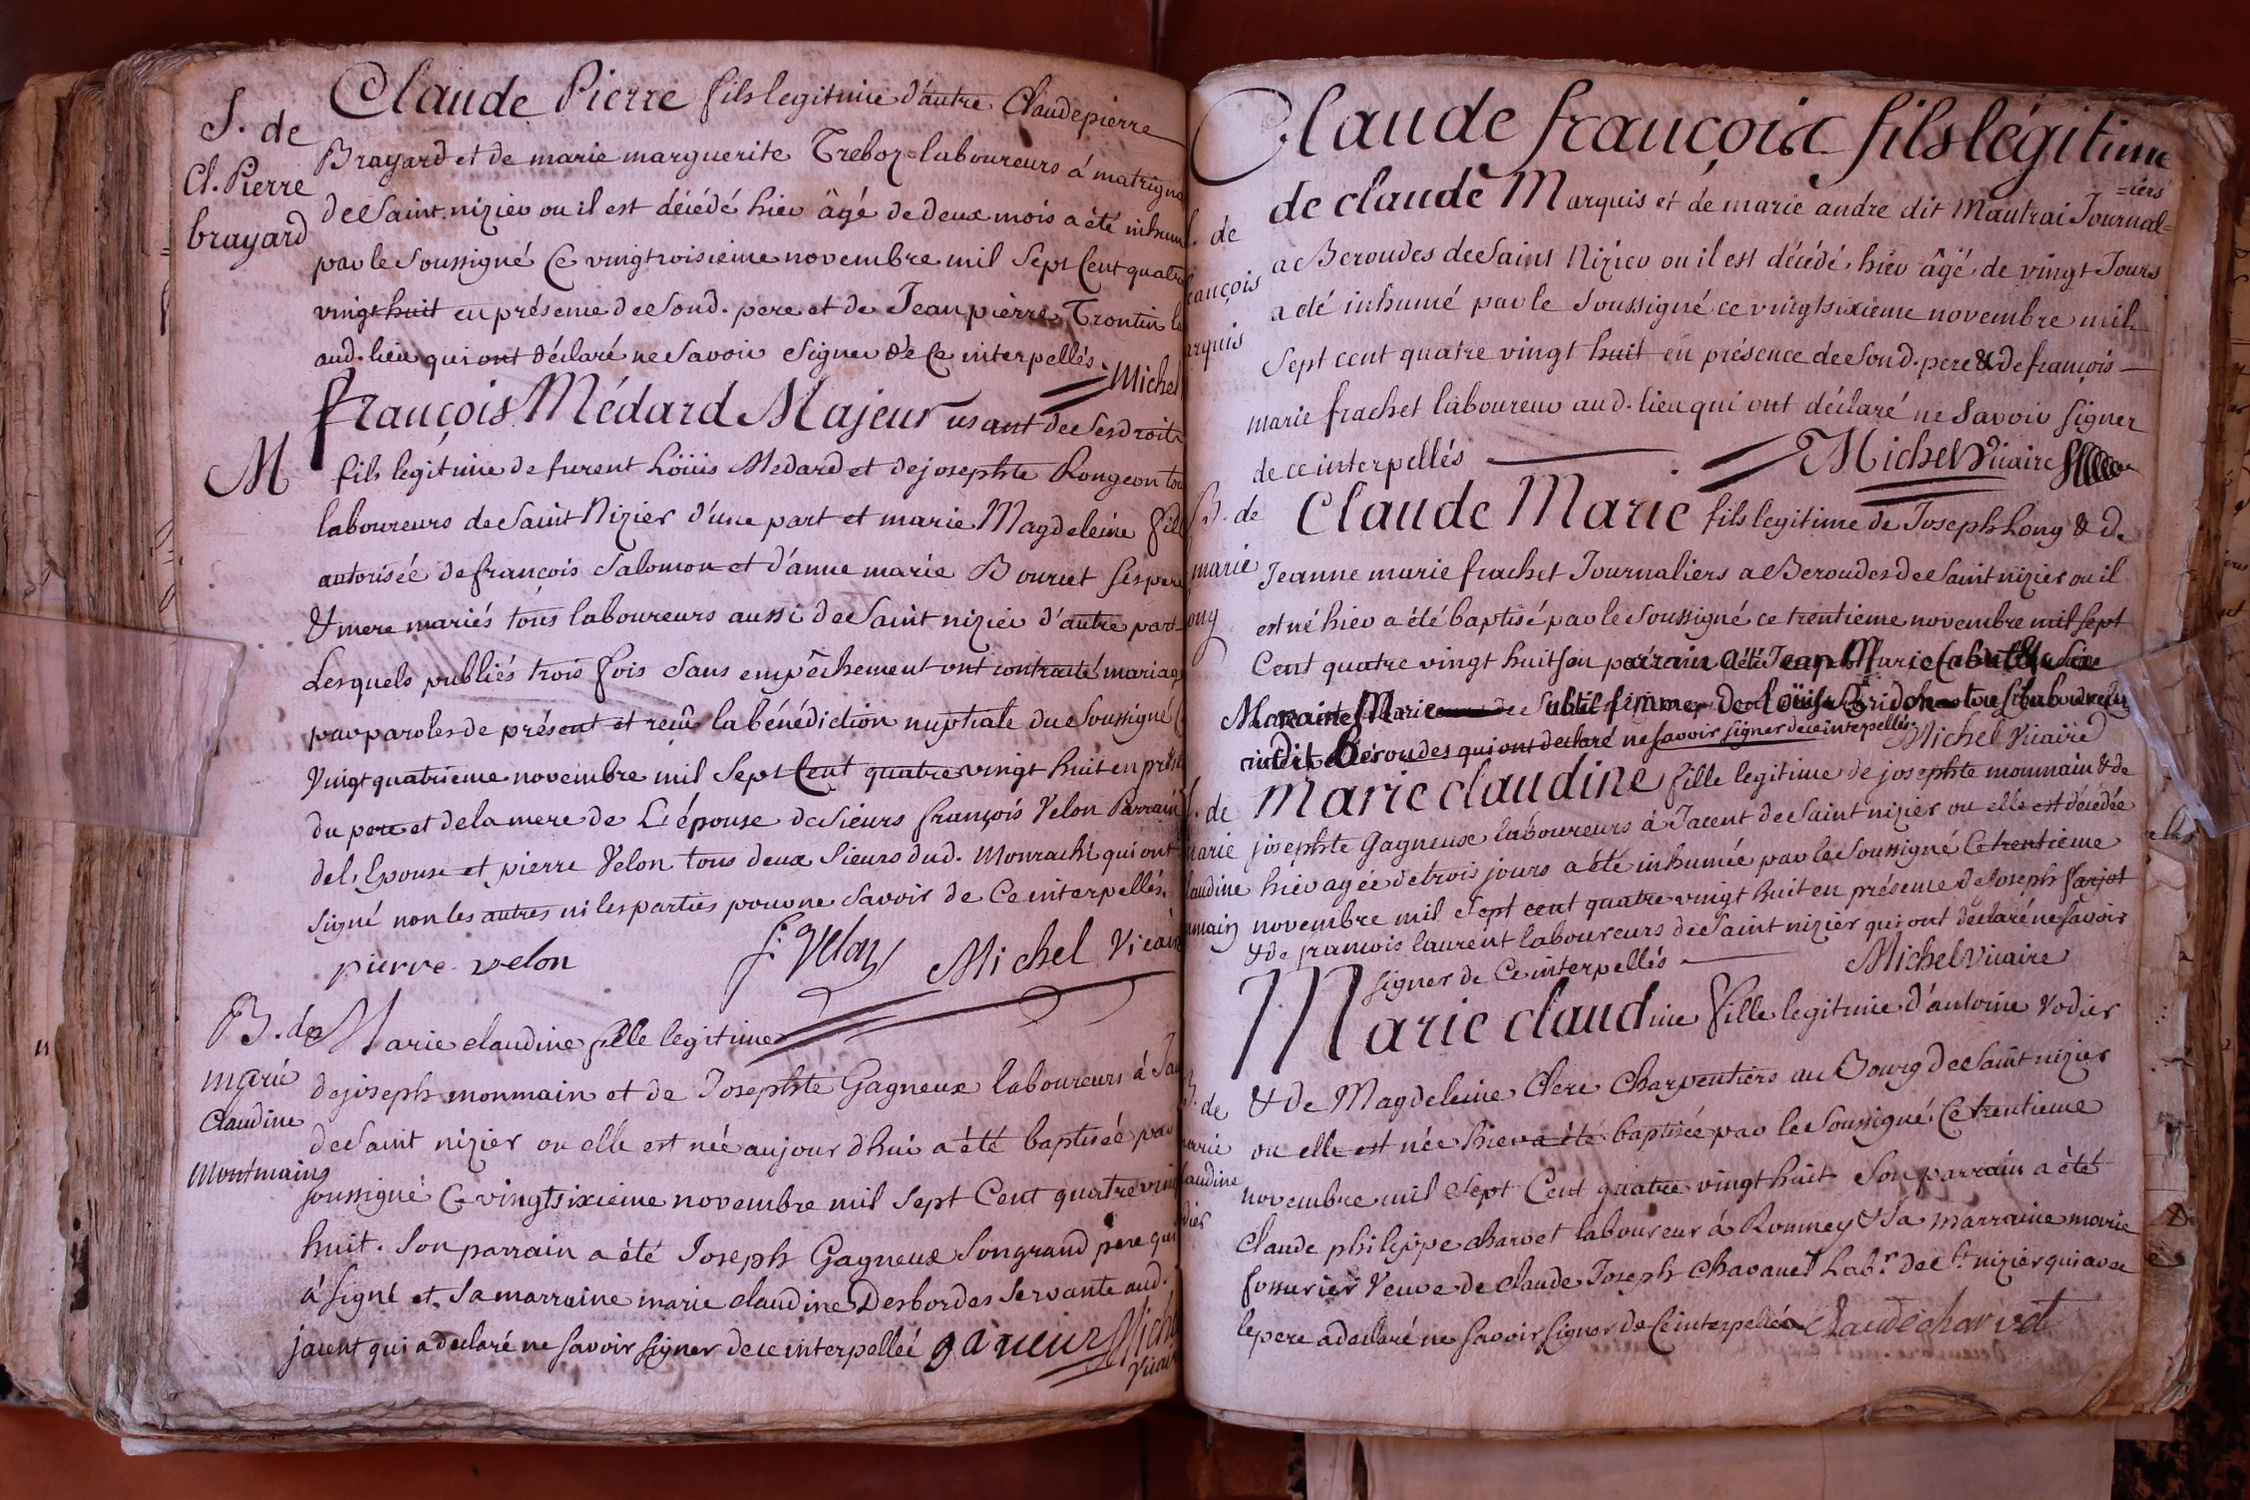 S. de
Cl. Pierre
brayard
Claude Pierre fils legitime d'autre Claudepierre
Brayard et de marie marguerite Treboz laboureurs á matrigna
de Saint nizier ou il est décédé hier âgé de deux mois a été inhum
par le Soussigné Ce vingtroisieme novembre mil Sept Cent quatre
vingt huit en présence de Sond. pere et de Jean pierre Trontin la
aud. lieu qui ont déclaré ne Savoir signer de Ce interpellés. Michel
M
françois Médard Majeur usant de Ses droits
fils legitime de furent Loüis Medard et de josephte Rongeon tou
laboureurs de Saint Nizier d'une part et marie Magdeleine fill
autorisée de françois Salomon et d'anne marie Bourcet Ses pere
& mere mariés tous laboureurs aussi de Saint nizier d'autre part
Lesquels publiés trois fois Sans empêchement ont contracté mariag
par paroles de présent et recû la bénédiction nuptiale du Soussigné C
vingt quatrieme novembre mil Sept Cent quatre vingt huit en prése
du pere et de la mere de L'épouse de Sieurs françois Velon Parrain
de l'Epouse et pierre Velon tous deux Sieurs dud. Monrachi qui ont
signé non les autres ni les parties pour ne Savoir de Ce interpellés.
pierre velon f. Velon Michel Vicair
B. de
marie
Claudine
Montmain
Marie claudine fille legitime
de joseph monmain et de Josephte Gagneux laboureurs á Ja
de Saint nizier ou elle est née aujour d'hui a été baptisée par
soussigné Ce vingtsixieme novembre mil Sept Cent quatre vin
huit. Son parrain a été Joseph Gagneux Son grand pere qui
á signé et Sa marraine marie claudine Desbordes Servante aud.
jacent qui a declaré ne Savoir signer de ce interpellée ganeur Miche
vicair
Claude françois fils légitime
de claude Marquis et de marie andre dit Mautrai Journal=
=iers
. de
ançois
arquis
a Beroudes de Saint Nizier ou il est décédé hier âgé de vingt Jours
a été inhumé par le Soussigné ce vingtsixieme novembre mil
Sept cent quatre vingt huit en présence de Son d. pere & de françois
marie frachet laboureur aud. lieu qui ont déclaré ne Savoir signer
de ce interpellés Michel Vicaire
B. de
marie
ong
Claude Marie fils legitime de Joseph Long & de
Jeanne marie frachet Journaliers a Beroudes de Saint nizier ou il
est né hier a été baptisé par le Soussigné ce trentieme novembre mil Sept
Cent quatre vingt huit son parrain a été Jean Marie & Sa
Maraine Marie Subtil femme de Loüis tous laboureurs
audit Béroudes qui ont declaré ne Savoir signer de ce interpellés Michel Vicaire
. de
marie
laudine
nmain
Marie claudine fille legitime de josephte monmain & de
josephte Gagneux laboureurs á Jacent de Saint nizier ou elle est décédée
hier agée de trois jours a été inhumée par le Soussigné Ce trentieme
novembre mil Sept cent quatre vingt huit en présence de Joseph farjot
& de francois laurent laboureurs de Saint nizier qui ont déclaré ne Savoir
signer de Ce interpellés Michel Vicaire
B. de
marie
laudine
odier
Marie claudine fille legitime d'antoine Vodier
& de Magdeleine Clere Charpentiers au Bourg de Saint nizier
ou elle est née hier a été baptisée par le Soussigné Ce trentieme
novembre mil Sept Cent quatre vingt huit Son parrain a été
Claude philippe charvet laboureur á Romney & Sa marraine marie
fossurier Veuve de claude Joseph Chavanet Labr. de St. nizier qui avec
le pere a declaré ne Savoir signer de Ce interpellés Claude charvet